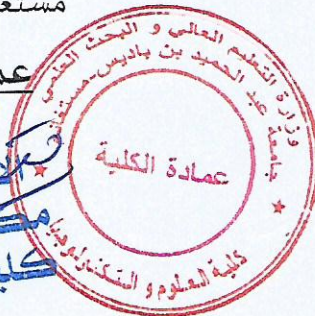 مستغ
عم
وزارة التعليم العالي و البحث العلمي
جامعة عبد الحميد بن باديس-مستغانم
عمادة الكلية
كلية العلوم و التكنولوجيا
كلي